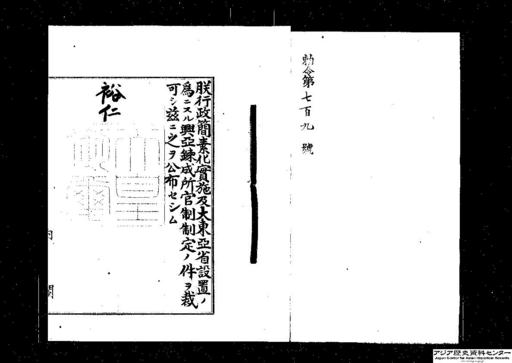 勅令第七百九號
朕行政簡素化實施及大東亞省設置ノ
爲ニスル興亞錬成所官制制定ノ件ヲ裁
可シ茲ニ之ヲ公布セシム
裕仁
内閣
アジア歴史資料センター
Japan Center for Asian Historical Records